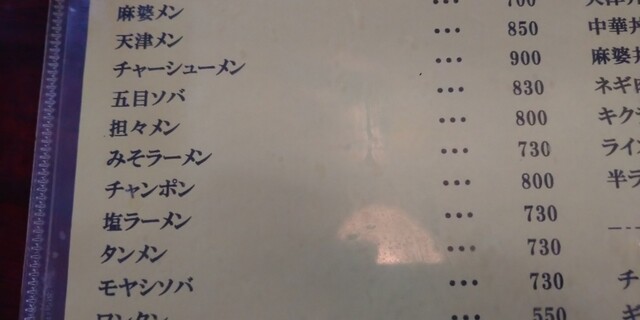 麻婆メン ••• 700
天津メン ••• 850
チャーシューメン ••• 900
五目ソバ ••• 830
担々メン ••• 800
みそラーメン ••• 730
チャンポン ••• 800
塩ラーメン ••• 730
タンメン ••• 730
モヤシソバ ••• 730
ワンタン ••• 550
中華丼
麻婆丼
ネギ
キク
ライ
半ラ
チ